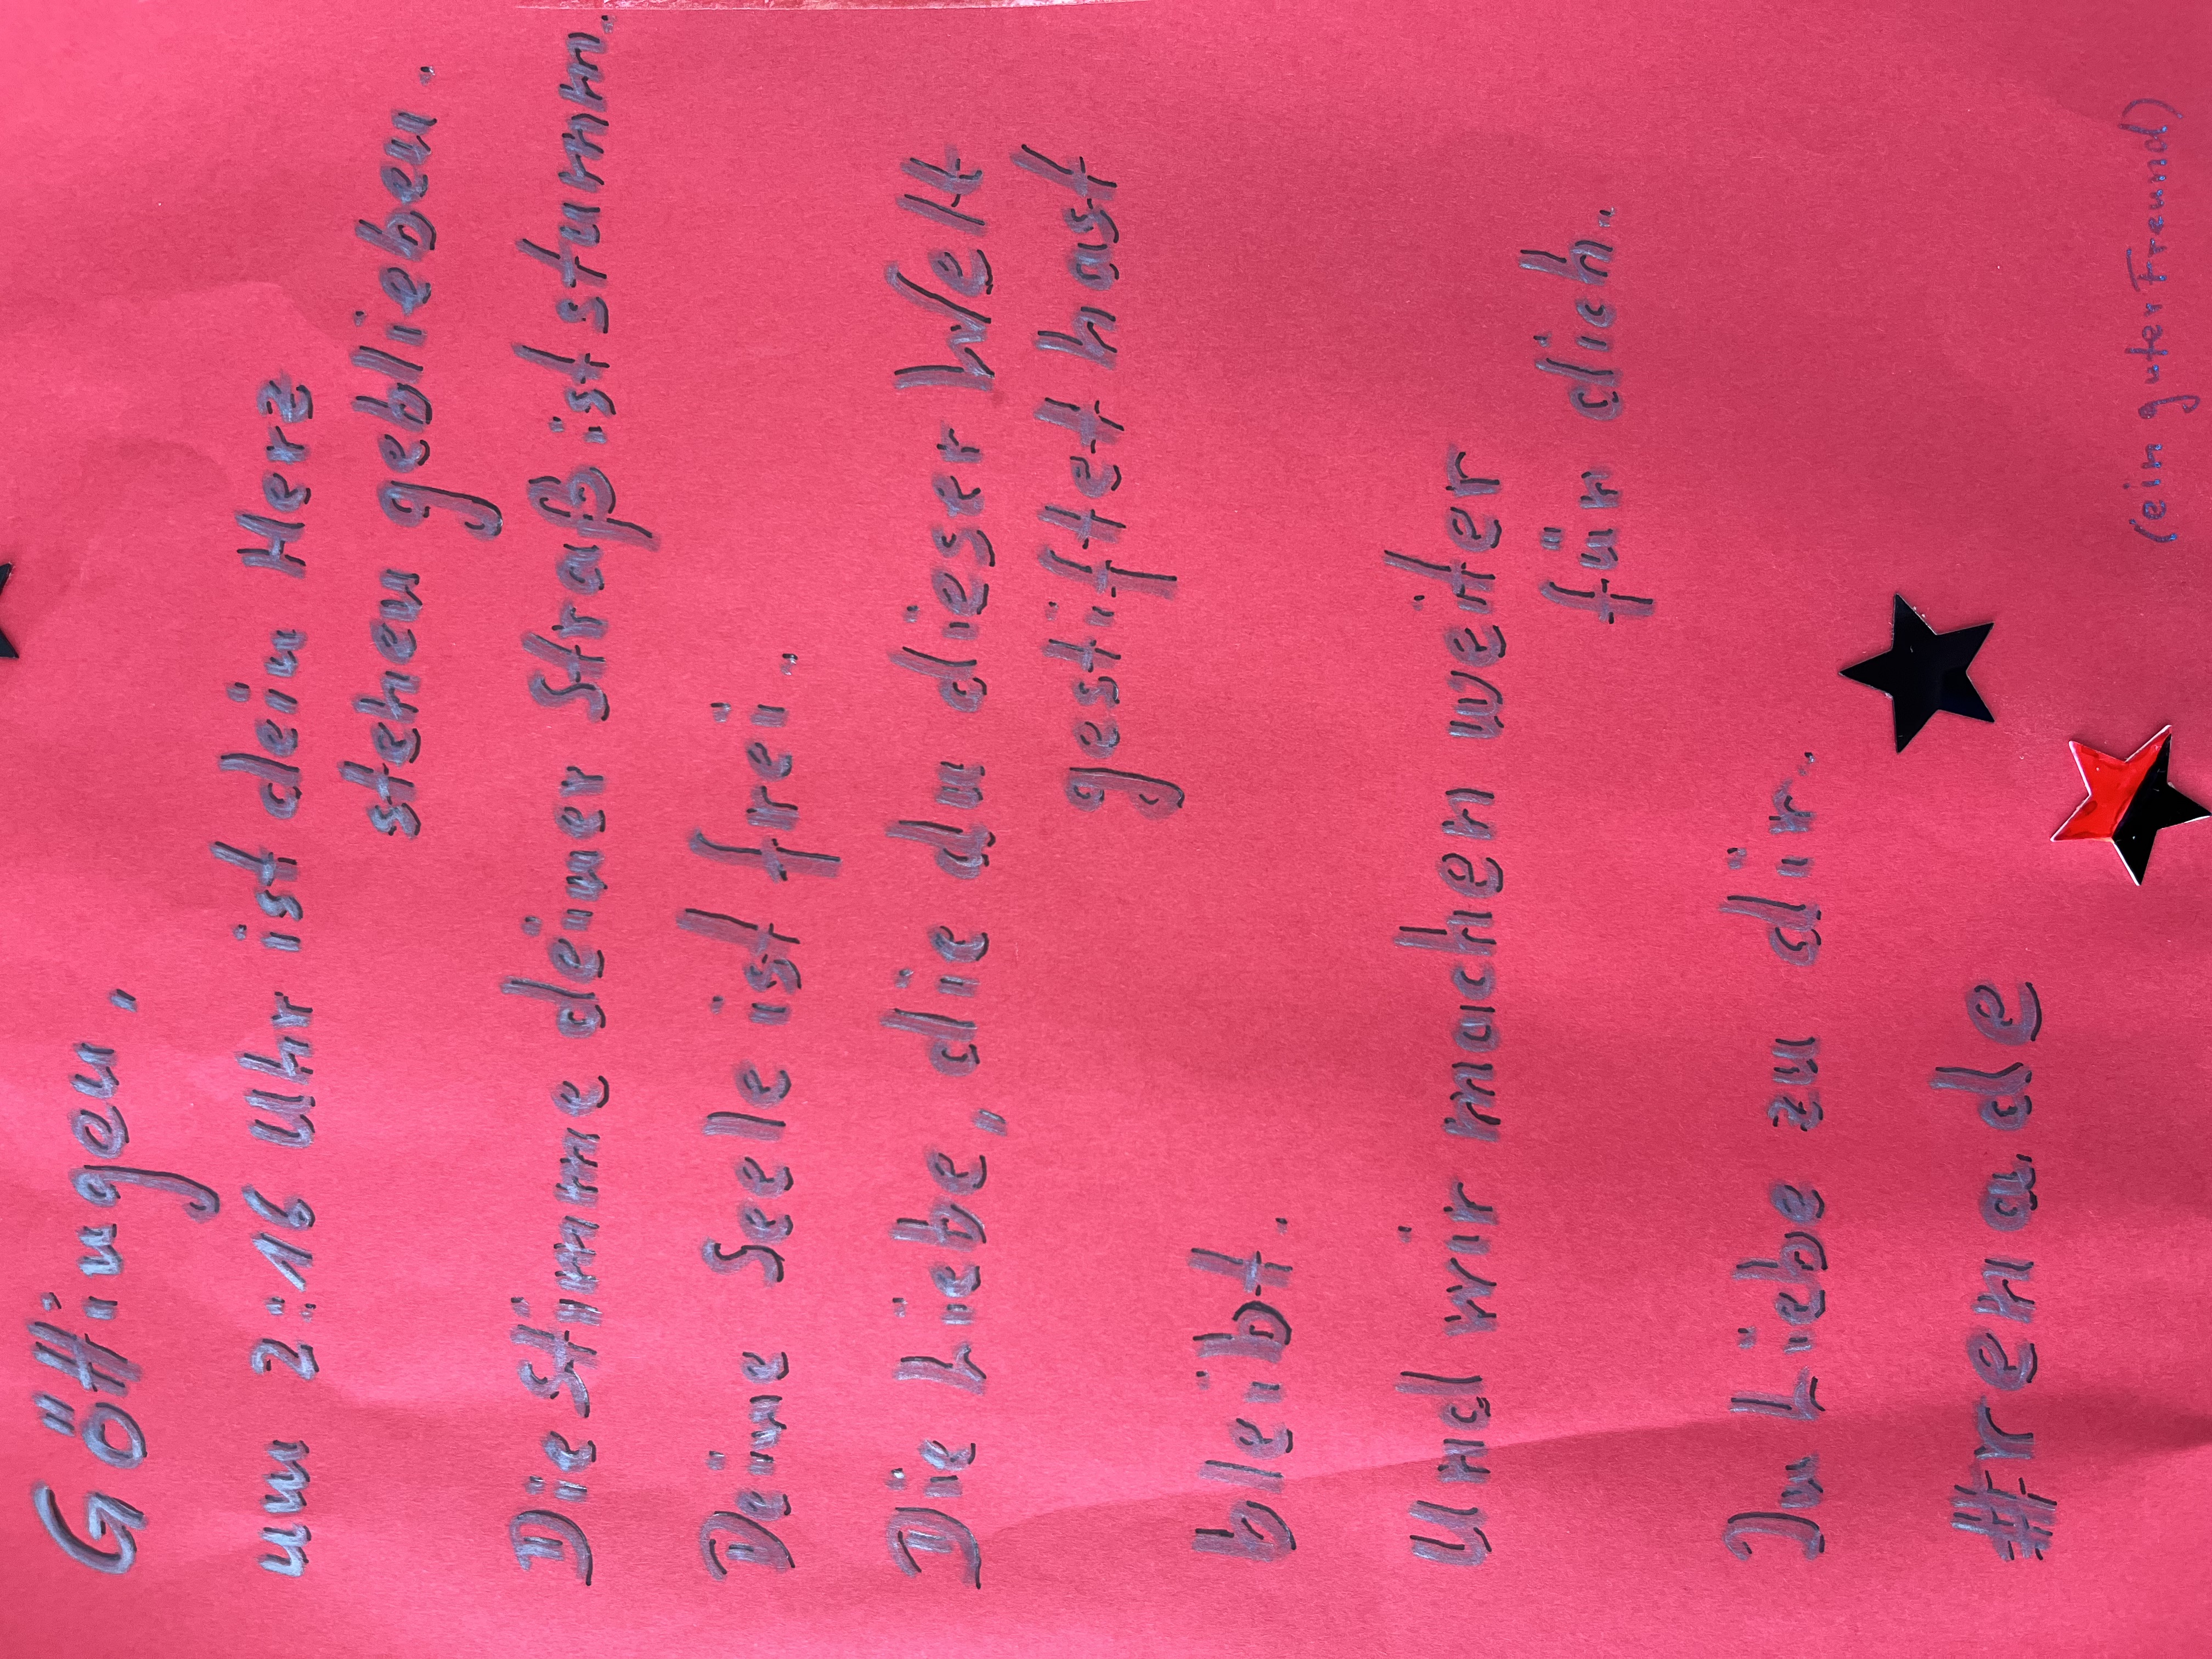 Göttingen,
um 2:16 Uhr ist dein Herz
stehen geblieben.
Die Stimme deiner Straß ist stumm.
Deine Seele ist frei.
Die Liebe, die du dieser Welt
gestiftet hast
bleibt.
Und wir machen weiter
für dich.
In Liebe zu dir.
#renade
(ein guter Freund)